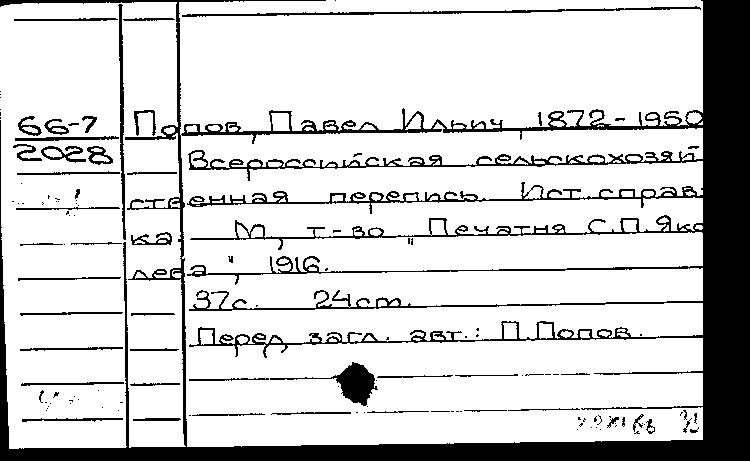 66-7
2028
Попов, Павел Ильич, 1872-1950
Всероссийская сельскохозяй
ственная перепись. Ист. справ-
ка. М, т-во „Печатня С.П.Яко
лева", 1916.
37с. 24cm.
Перед загл. авт.: П.Попов.